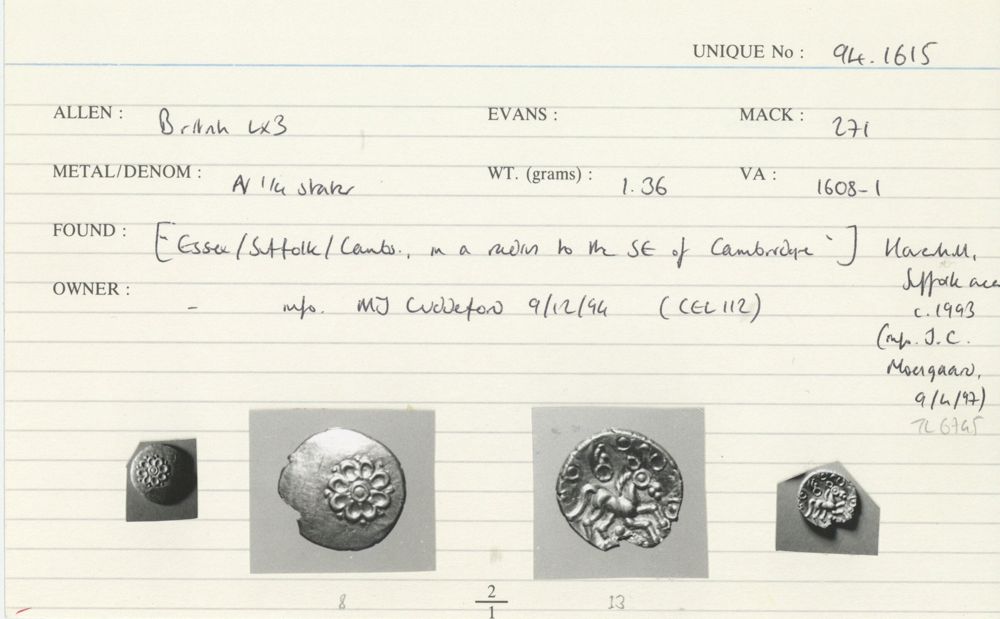 UNIQUE No : 94.1615
ALLEN : British Lx3 EVANS : MACK : 271
METAL/DENOM : AV 1/4 stater WT. (grams) : 1.36 VA : 1608-1
FOUND : ["Essex/Suffolk/Cambs., in a radius to the SE of Cambridge"] Haverhill,
Suffolk area
c.1993
(info. J.C.
9/4/97)
TL 6745
OWNER : - info. MJ Cuddeford 9/12/94 (CEL 112)
8 2/1 13